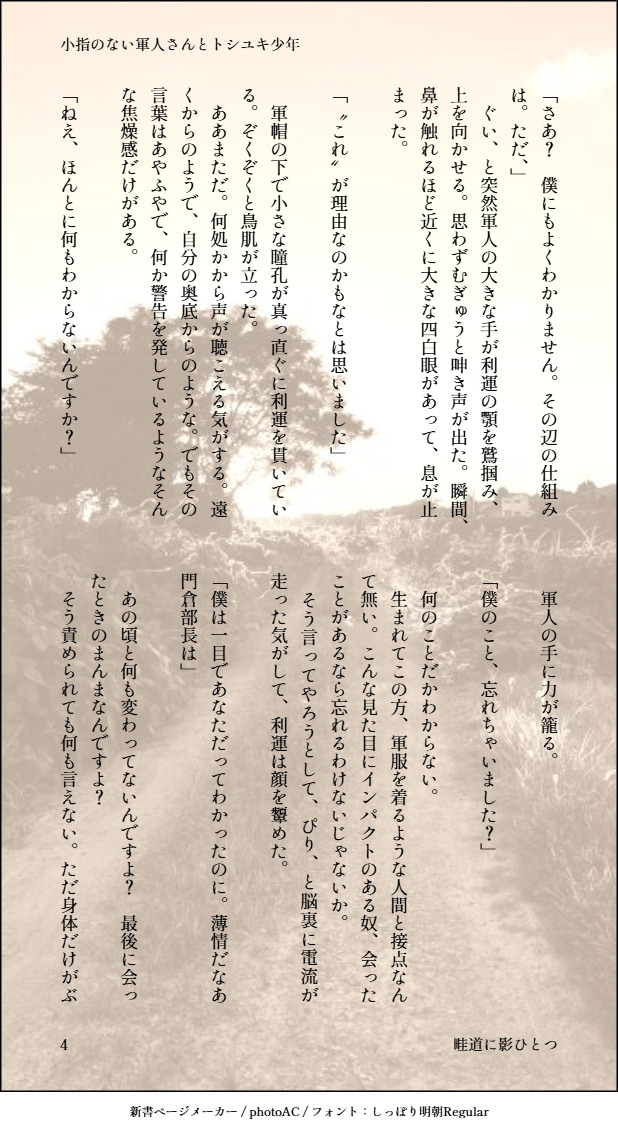 小指のない軍人さんとトシユキ少年
「さあ？　僕にもよくわかりません。その辺の仕組み
は。ただ、」
　ぐい、と突然軍人の大きな手が利運の顎を鷲掴み、
上を向かせる。思わずむぎゅうと呻き声が出た。瞬間、
鼻が触れるほど近くに大きな四白眼があって、息が止
まった。
「〝これ〟が理由なのかもなとは思いました」
　軍帽の下で小さな瞳孔が真っ直ぐに利運を貫いてい
る。ぞくぞくと鳥肌が立った。
　ああまただ。何処かから声が聴こえる気がする。遠
くからのようで、自分の奥底からのような。でもその
言葉はあやふやで、何か警告を発しているようなそん
な焦燥感だけがある。
「ねえ、ほんとに何もわからないんですか？」
　軍人の手に力が籠る。
「僕のこと、忘れちゃいました？」
　何のことだかわからない。
　生まれてこの方、軍服を着るような人間と接点なん
て無い。こんな見た目にインパクトのある奴、会った
ことがあるなら忘れるわけないじゃないか。
　そう言ってやろうとして、ぴり、と脳裏に電流が
走った気がして、利運は顔を顰めた。
「僕は一目であなただってわかったのに。薄情だなあ
門倉部長は」
　あの頃と何も変わってないんですよ？　最後に会っ
たときのまんまなんですよ？
　そう責められても何も言えない。ただ身体だけがぶ
畦道に影ひとつ
4
新書ページメーカー / photoAC / フォント：しっぽり明朝Regular